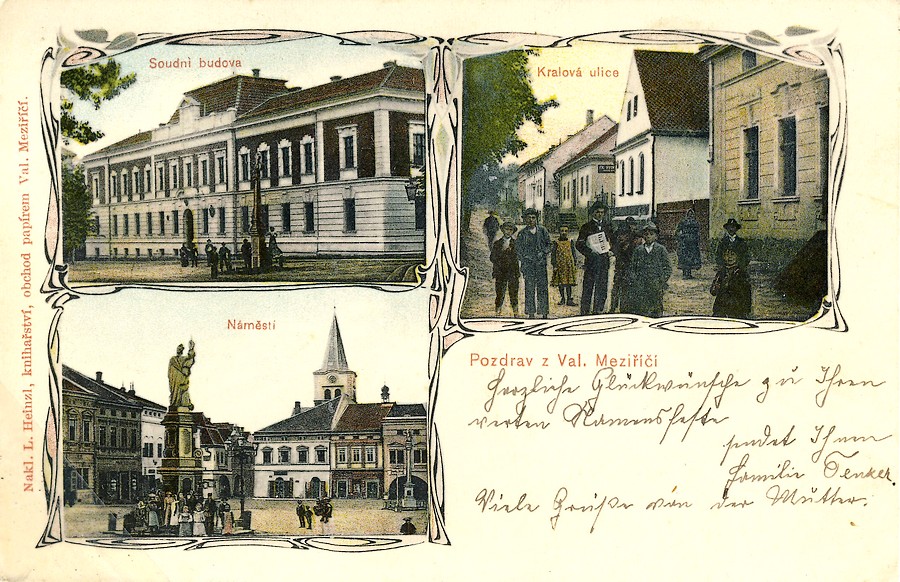 Soudní budova
Kralová ulice
Náměstí
Pozdrav z Val. Meziříčí
Herzliche Glückwünsche zu Ihrem
werten Namensfeste
sendet Ihnen
Familie Tenker.
Viele Grüße von der Mutter.
Nakl. L. Heinzl, knihařství, obchod papírem Val. Meziříčí.